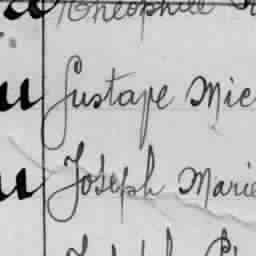 Théophile
u Gustave Mic
u Joseph Marie